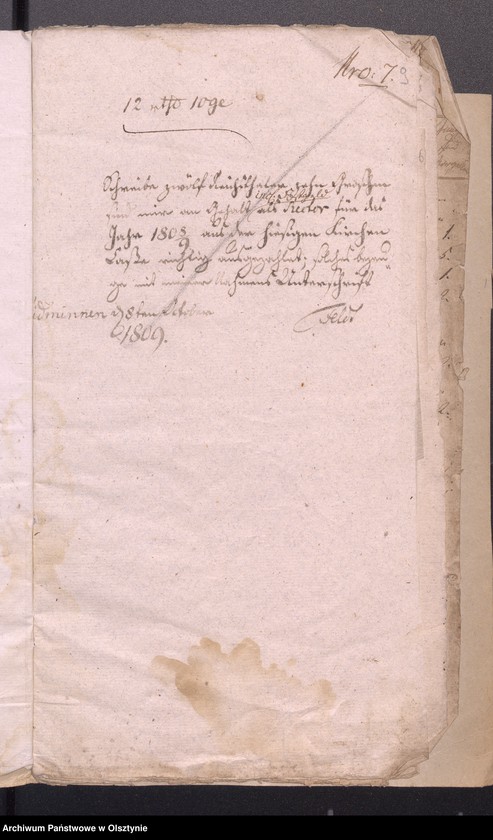 Nro: 7. 9
12 rth 10 ge
Schreibe zwölf Reichsthaler zehn Groschen
sind mir an Gehalt als Rector für das
Jahr 1808/9 aus der hiesigen Kirchen
Casse richtig ausgezahlet; solches bezeu-
ge mit meiner Nahmens Unterschrift
d 8ten October
1809.
Archiwum Państwowe w Olsztynie